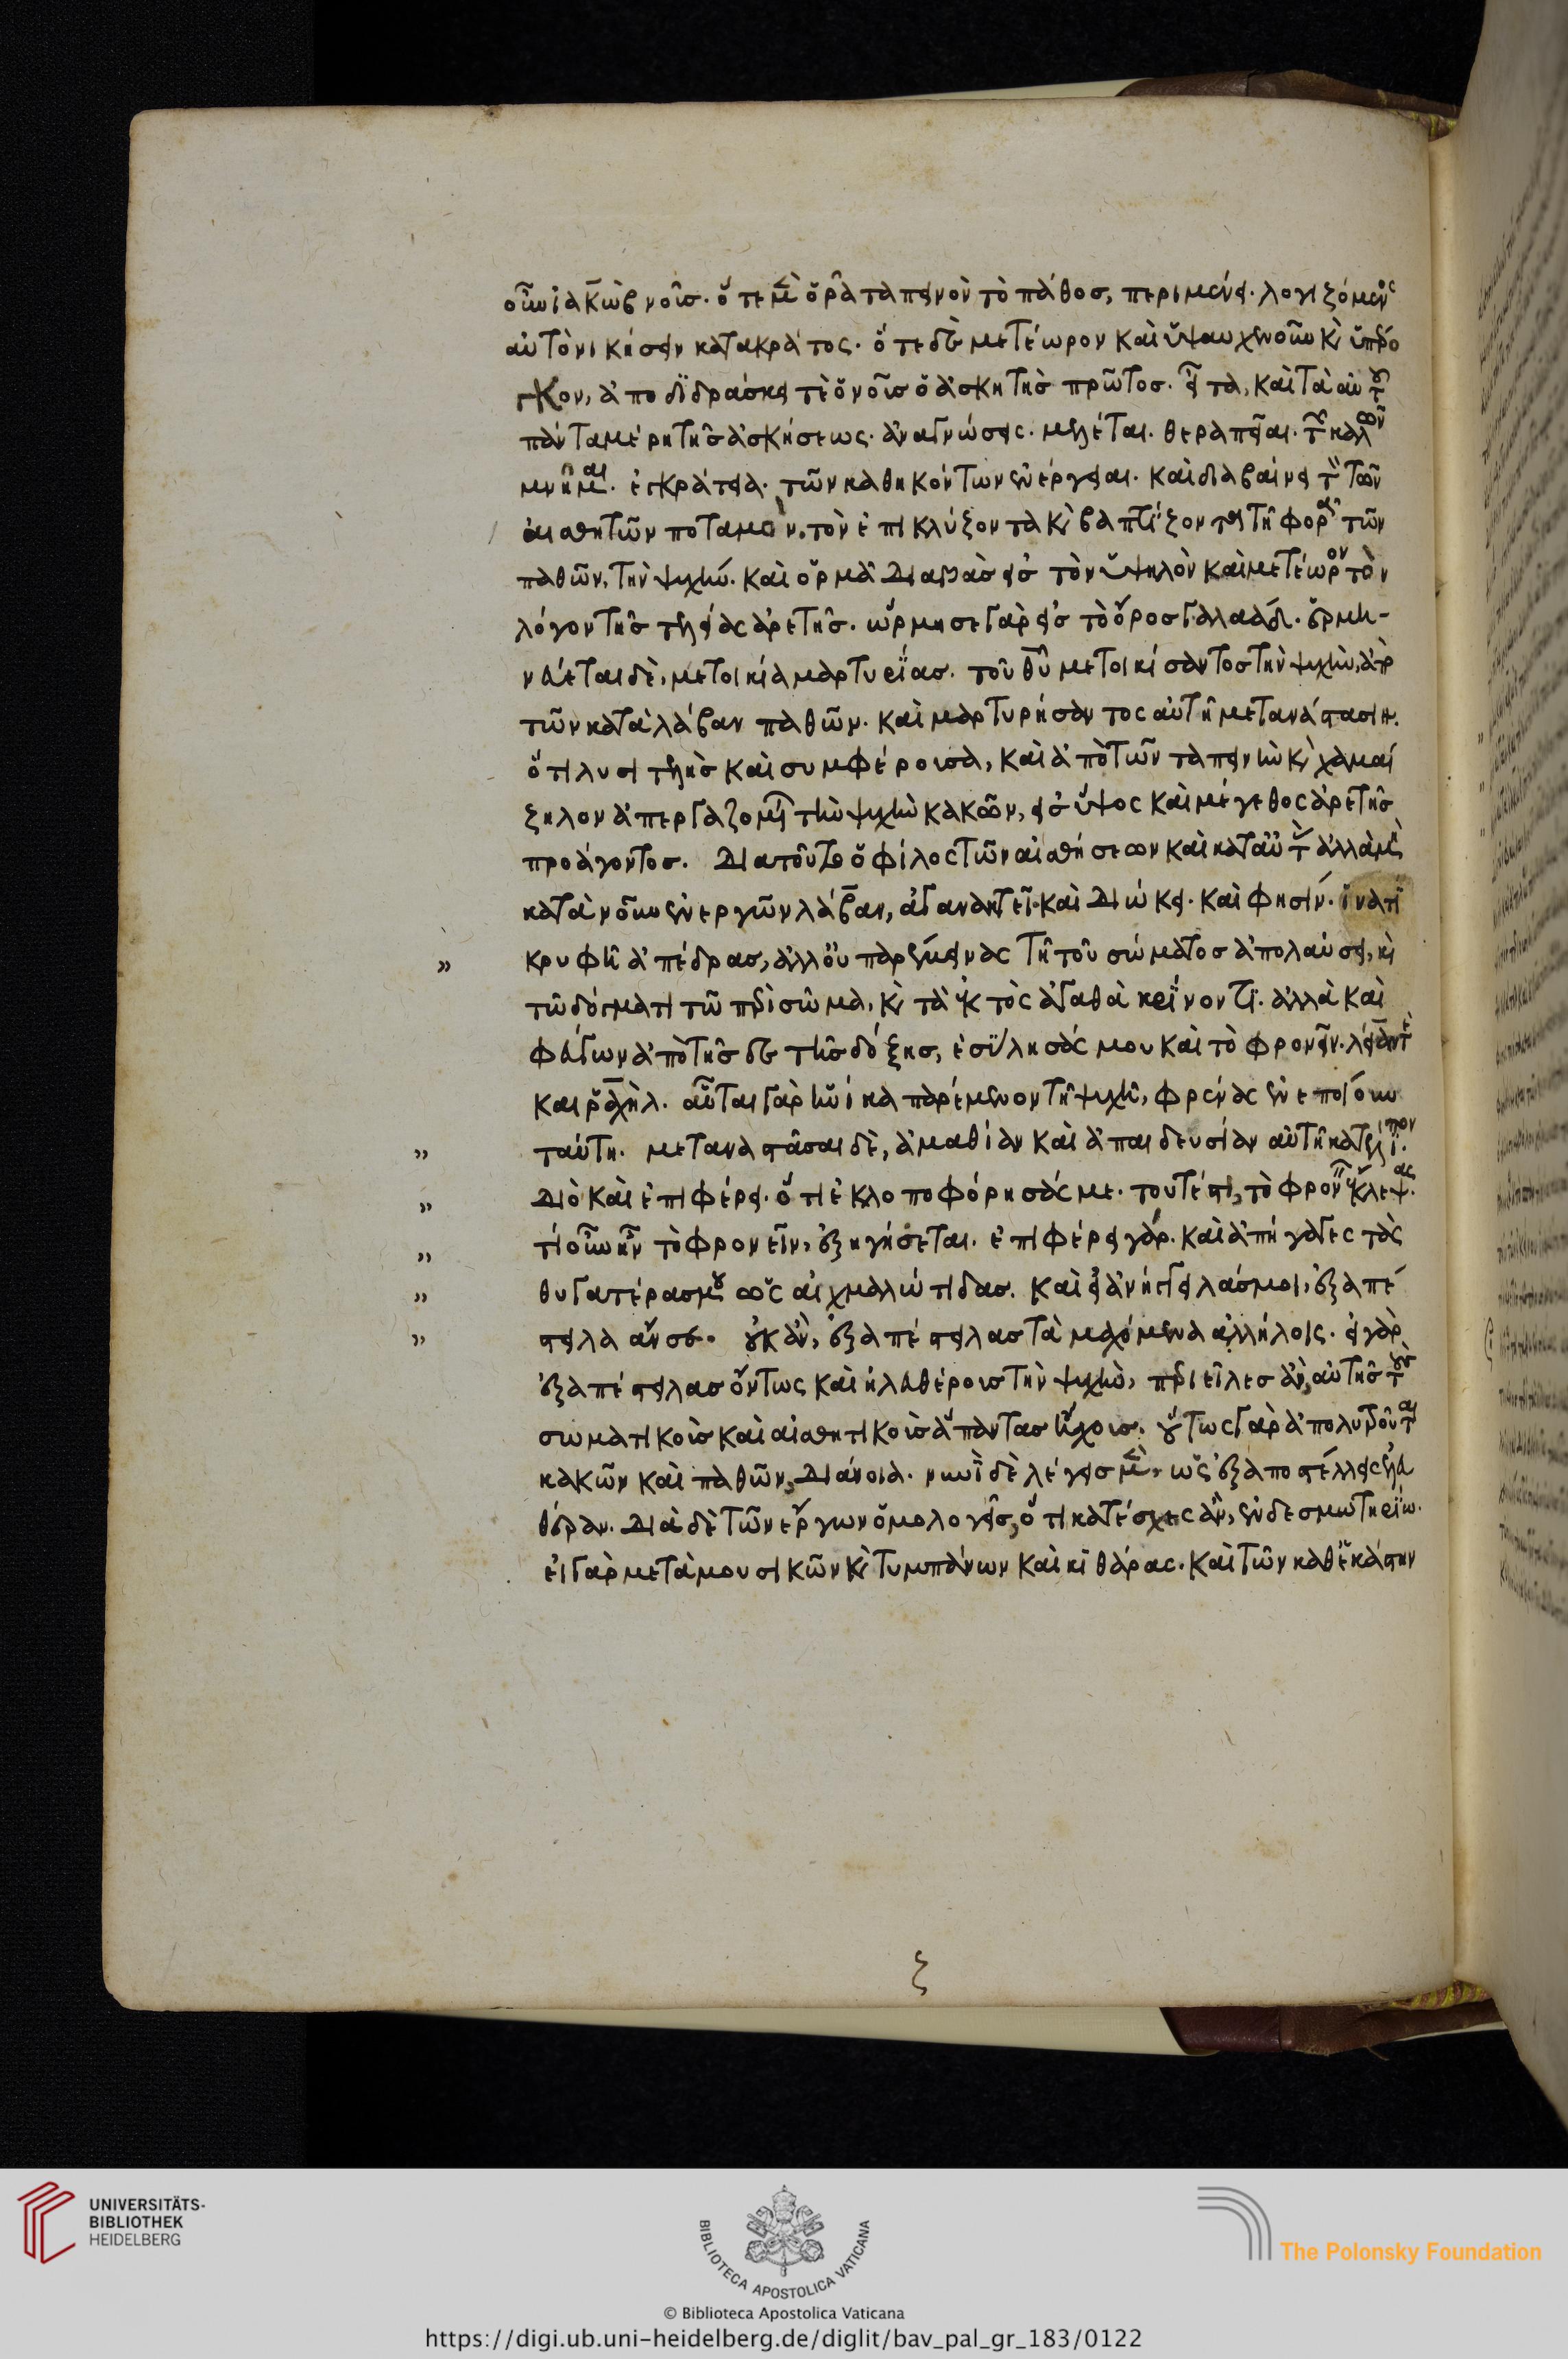 οὖν ἰακὼβ νοῦς. ὅτε μὲν ὁρᾶ ταπεινὸν τὸ πάθος, περιμένει. λογιζόμενος
αὐτὸ νικήσειν κατακράτος. ὅτε δὲ μετέωρον καὶ ὑψαυχενοῦν κὶ ὑπέρο
γκον, ἀποδιδράσκει τὲ ὁ νοῦς ὁ ἀσκητὴς πρῶτος. εἶτα, καὶ τὰ αὐτοῦ
πάντα μέρη τῆς ἀσκήσεως. ἀναγνώσεις. μελέται. θεραπεῖαι. τῶν καλῶν
μνῆμαι. ἐγκράτεια. τῶν καθηκόντων ἐνέργειαι. καὶ διαβαίνει τὸν τῶν
αἰσθητῶν ποταμὸν. τὸν ἐπικλύζοντα κὶ βαπτίζοντα τῆ φορᾶ τῶν
παθῶν, τὴν ψυχήν. καὶ ὁρμᾶ διαβὰς εἰς τὸν ὑψηλὸν καὶ μετέωρον τὸν
λόγον τῆς τελείας ἀρετῆς. ὥρμησε γὰρ εἰς τὸ ὄρος γαλαάδ. ἑρμη-
νεύεται δὲ, μετοικία μαρτυρίας. τοῦ θυ μετοικίσαντος τὴν ψυχὴν, ἀπὸ
τῶν κατα λάβαν παθῶν. καὶ μαρτυρήσαντος αὐτῆ μετανάστασιν.
ὅτι λυσιτελὴς καὶ συμφέρουσα, καὶ ἀπὸ τῶν ταπεινὴν κὶ χαμαί
ζηλον ἀπεργαζομένων τὴν ψυχὴν κακῶν, εἰς ὕψος καὶ μέγεθος ἀρετῆς
προάγοντος. Διατοῦτο ὁ φίλος τῶν αἰσθήσεων καὶ κατ αὐτὰς ἀλλὰ μὴ
κατὰ νοῦν ἐνεργῶν λάβαν, ἀγανακτεῖ. καὶ διώκει. καὶ φησίν. ἵνατί
κρυφῆ ἀπέδρας, ἀλλ οὐ παρέμεινας τῆ τοῦ σώματος ἀπολαύσει, κὶ
τῶ δόγματι τῶ περὶ σῶμα, κὶ τὰ ἐκτὸς ἀγαθὰ κρίνοντι. ἀλλὰ καὶ
φεύγων ἀπὸ τῆς δὲ τῆς δόξης, ἐσύλησάς μου καὶ τὸ φρονεῖν. λείαν τὲ
καὶ ῥαχὴλ. αὗται γὰρ ἡνίκα παρέμενον τῆ ψυχῆ, φρένας ἐνεποίουν
ταύτη. μεταναστᾶσαι δὲ, ἀμαθίαν καὶ ἀπαιδευσίαν αὐτῆ κατέλιπον.
Διὸ καὶ ἐπιφέρει. ὅτι ἐκλοποφόρησάς με. τουτέστι, τὸ φρονεῖν ἔκλεψας.
τί οὖν ἦν τὸ φρονεῖν, ἐξηγήσεται. ἐπιφέρει γάρ. καὶ ἀπήγαγες τὰς
θυγατέρας μου ὡς αἰχμαλώτιδας. καὶ εἰ ἀνήγγειλάς μοι, ἐξαπέ
στειλα ἄν σε. οὐκ ἂν, ἐξαπέστειλας τὰ μαχόμενα ἀλλήλοις. εἰ γὰρ
ἐξαπέστειλας ὄντως καὶ ἠλευθέρους τὴν ψυχὴν, περιεῖλες ἂν, αὐτῆς τοὺς
σωματικοὺς καὶ αἰσθητικοὺς ἅπαντας ἤχους. οὕτως γὰρ ἀπολυτροῦται
κακῶν καὶ παθῶν, διάνοια. νυνὶ δὲ λέγεις μὲν, ὡς ἐξαποστέλλεις ἐλευ
θέραν. Διὰ δὲ τῶν ἔργων ὁμολογεῖς, ὅτι κατέσχες ἂν, ἐν δεσμωτηρίω.
εἰ γὰρ μετὰ μουσικῶν κὶ τυμπάνων καὶ κιθάρας. καὶ τῶν καθ ἑκάστην
ζ
UNIVERSITÄTS-
BIBLIOTHEK
HEIDELBERG
BIBLIOTECA APOSTOLICA VATICANA
The Polonsky Foundation
© Biblioteca Apostolica Vaticana
https://digi.ub.uni-heidelberg.de/diglit/bav_pal_gr_183/0122